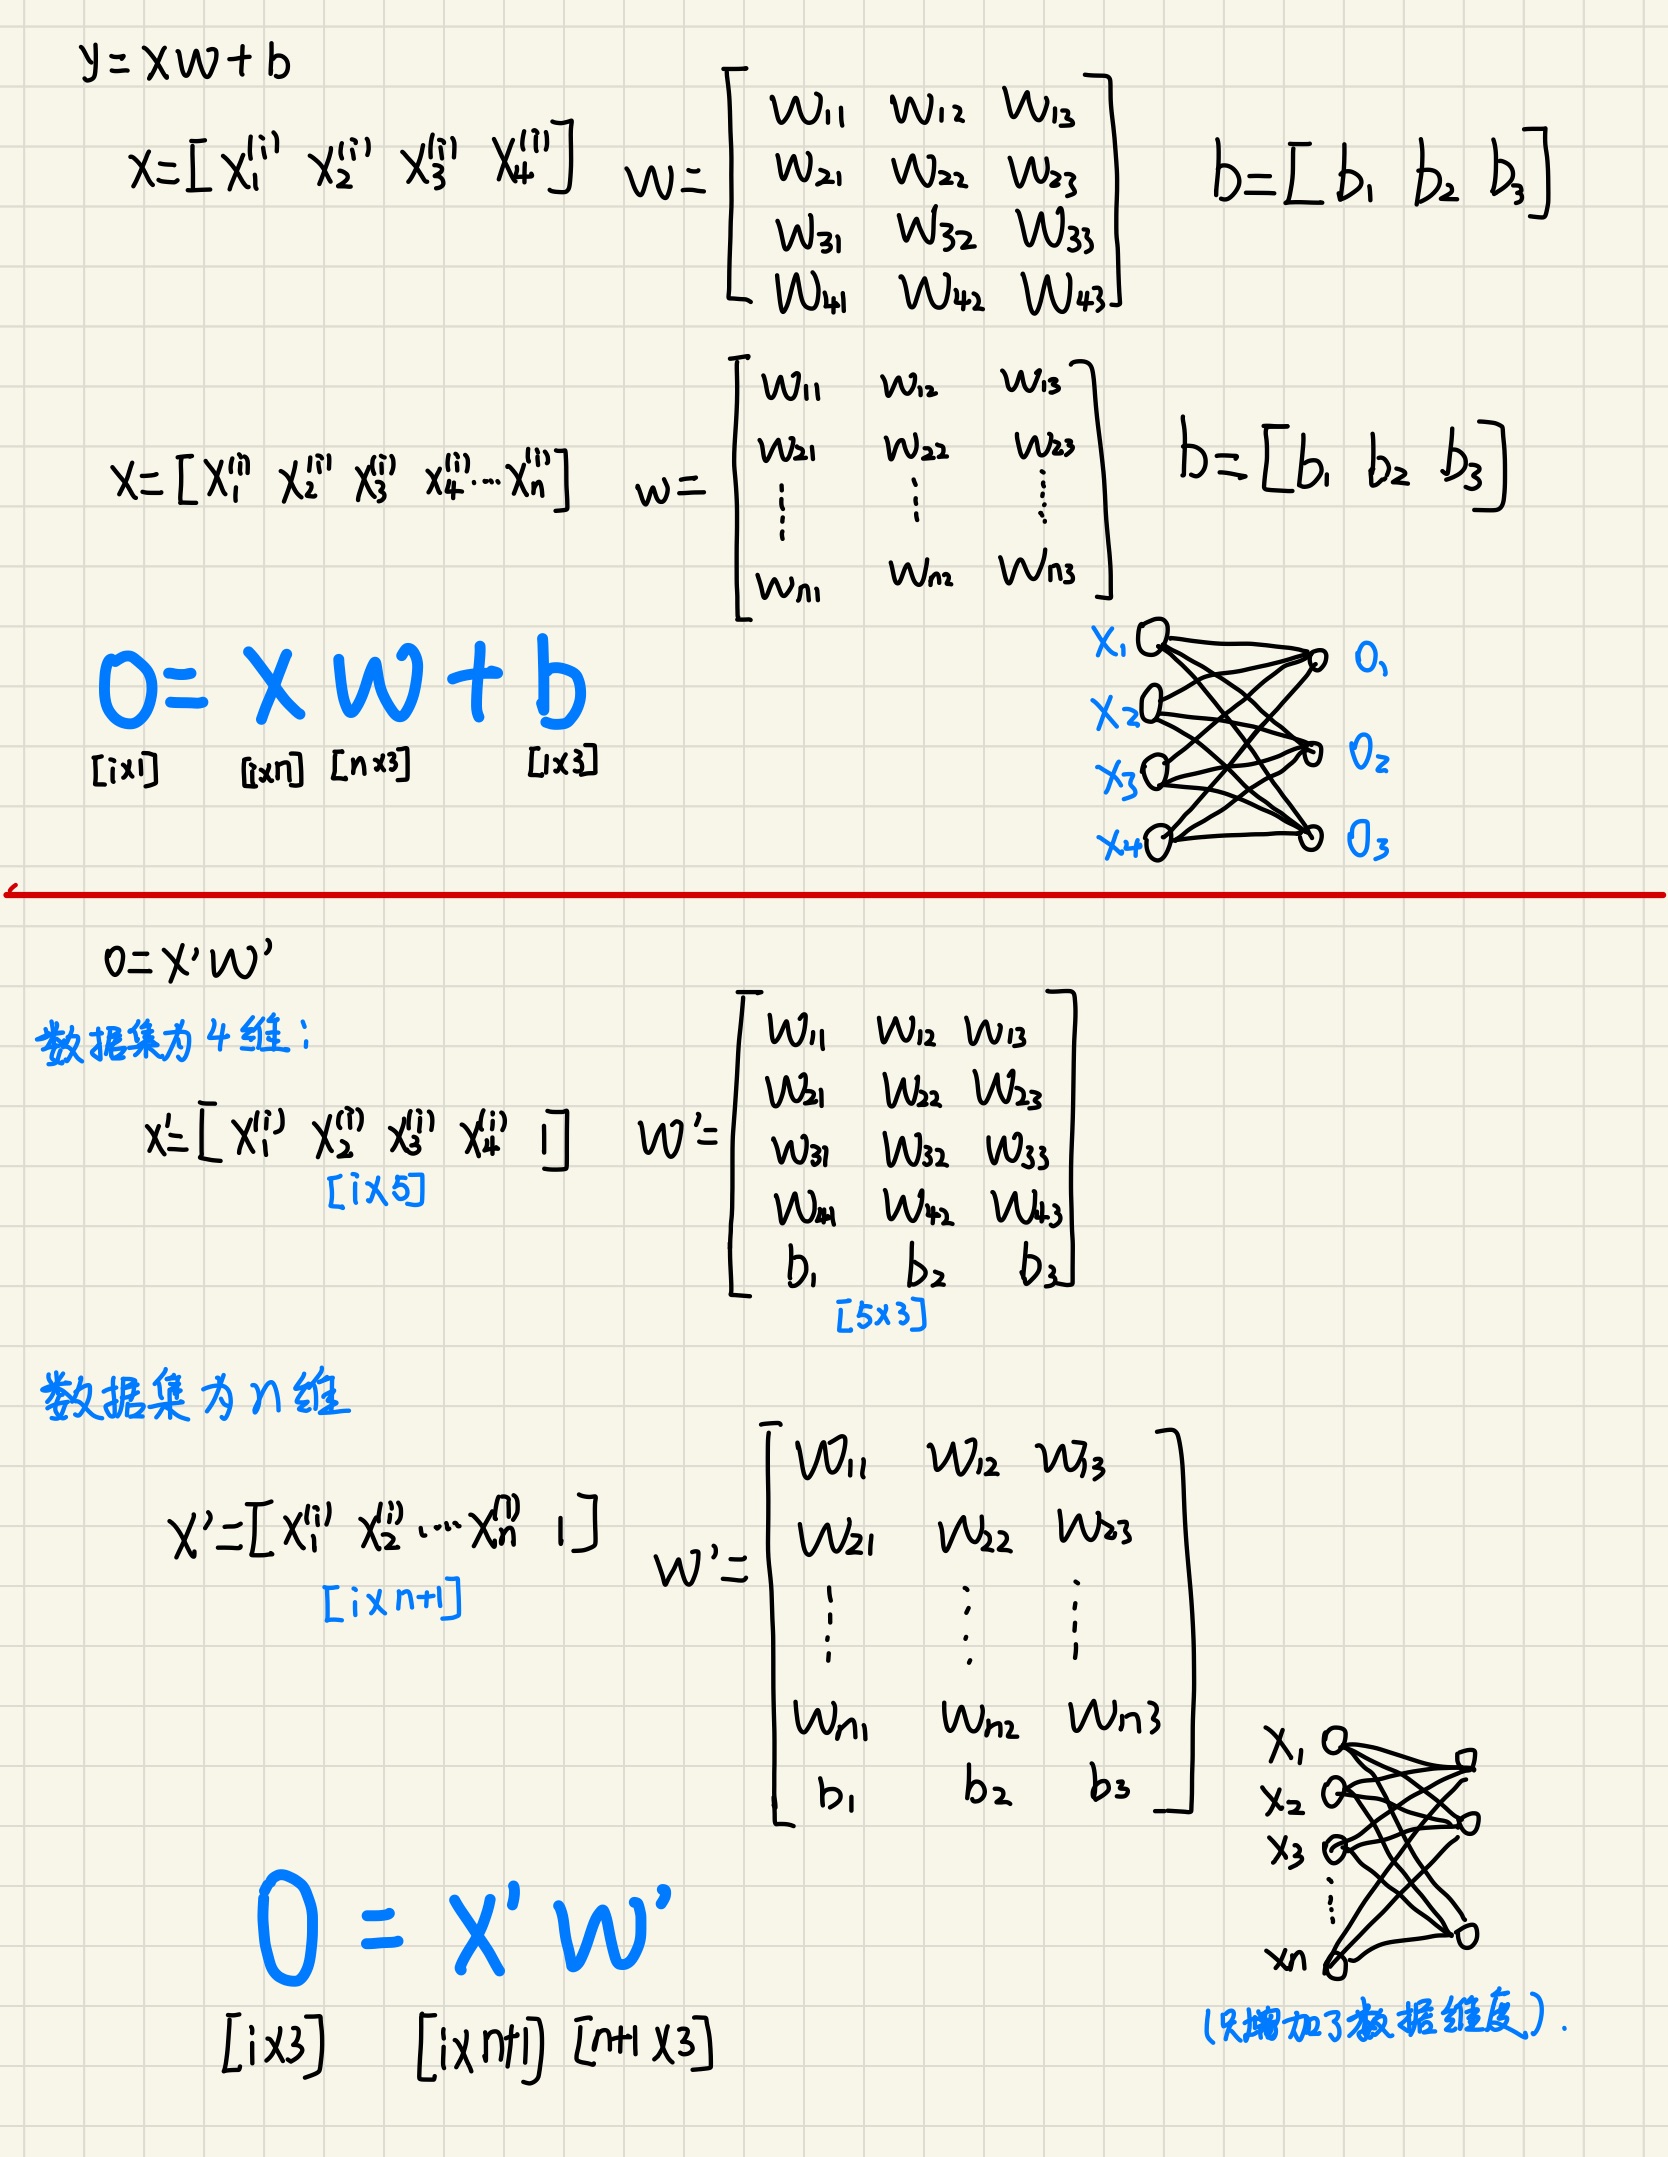 y = xw + b
x = [ x₁⁽ⁱ⁾ x₂⁽ⁱ⁾ x₃⁽ⁱ⁾ x₄⁽ⁱ⁾ ] w = [ w₁₁ w₁₂ w₁₃
w₂₁ w₂₂ w₂₃
w₃₁ w₃₂ w₃₃
w₄₁ w₄₂ w₄₃ ] b = [ b₁ b₂ b₃ ]
x = [ x₁⁽ⁱ⁾ x₂⁽ⁱ⁾ x₃⁽ⁱ⁾ x₄⁽ⁱ⁾ ... xₙ⁽ⁱ⁾ ] w = [ w₁₁ w₁₂ w₁₃
w₂₁ w₂₂ w₂₃
⋮ ⋮ ⋮
wₙ₁ wₙ₂ wₙ₃ ] b = [ b₁ b₂ b₃ ]
O = x w + b
[i×1] [i×n] [n×3] [1×3]
x₁ O₁
x₂ O₂
x₃
x₄ O₃
O = x' w'
数据集为4维:
x' = [ x₁⁽ⁱ⁾ x₂⁽ⁱ⁾ x₃⁽ⁱ⁾ x₄⁽ⁱ⁾ 1 ] w' = [ w₁₁ w₁₂ w₁₃
w₂₁ w₂₂ w₂₃
w₃₁ w₃₂ w₃₃
w₄₁ w₄₂ w₄₃
b₁ b₂ b₃ ]
[i×5]
[5×3]
数据集为n维
x' = [ x₁⁽ⁱ⁾ x₂⁽ⁱ⁾ ... xₙ⁽ⁱ⁾ 1 ] w' = [ w₁₁ w₁₂ w₁₃
w₂₁ w₂₂ w₂₃
⋮ ⋮ ⋮
wₙ₁ wₙ₂ wₙ₃
b₁ b₂ b₃ ]
[i×n+1]
x₁
x₂
x₃
⋮
xn
(只增加了数据维度).
O = x' w'
[i×3] [i×n+1] [n+1×3]